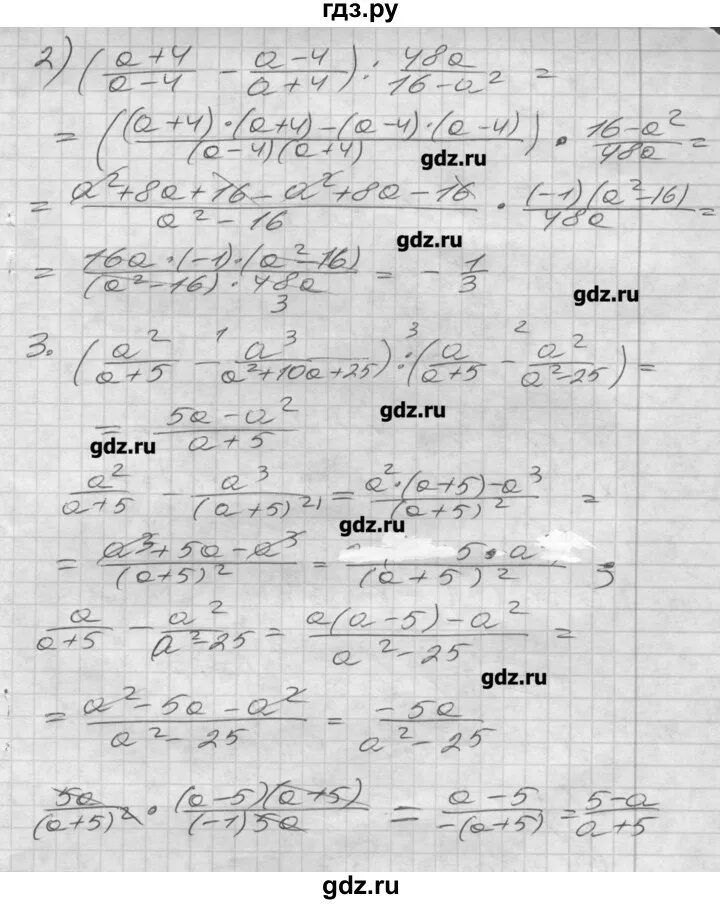 гдз.ру
2) ((a+4)/(a-4) - (a-4)/(a+4)) : 48a/(16-a²) =
= (((a+4)·(a+4)-(a-4)·(a-4))/((a-4)(a+4))) · (16-a²)/48a =
gdz.ru
= (a²+8a+16-a²+8a-16)/(a²-16) · ((-1)(a²-16))/48a =
gdz.ru
= (16a·(-1)·(a²-16))/((a²-16)·48a) = - 1/3
3
gdz.ru
3. (a²/(a+5) -¹ a³/(a²+10a+25)) :³ (a/(a+5) -² a²/(a²-25)) =
gdz.ru
= (5a-a²)/(a+5)
gdz.ru
a²/(a+5) - a³/(a+5)² ¹⁾ = (a²·(a+5)-a³)/(a+5)² =
gdz.ru
= (a³+5a-a³)/(a+5)² = 5·a/(a+5)² ;
a/(a+5) - a²/(a²-25) = (a(a-5)-a²)/(a²-25) =
gdz.ru
= (a²-5a-a²)/(a²-25) = -5a/(a²-25)
5a/(a+5)² · ((a-5)(a+5))/((-1)5a) = (a-5)/(-(a+5)) = (5-a)/(a+5)
gdz.ru